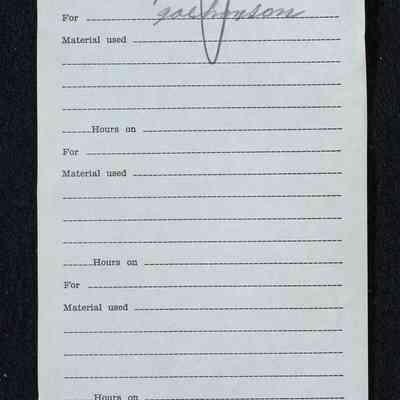 For
Material used
Hours on
For
Material used
Hours on
For
Material used
Hours on